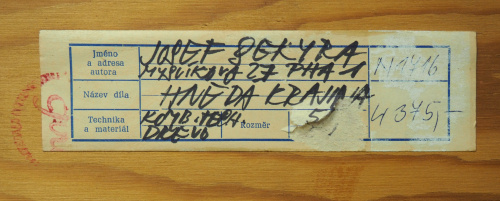 Jméno a adresa autora JOSEF ŠEKYRA
MYSLÍKOVA 27 PHA-1
Název díla HNĚDÁ KRAJINA
Technika a materiál KOMB. TECH.
DŘEVO Rozměr 5
4 375,-